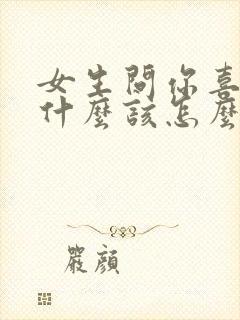 女生問你喜
什麼該怎麼
嚴顏